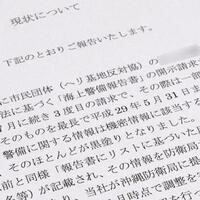 現状について
下記のとおりご報告いたします。
に市民団体(ヘリ基地反対協)の開示請求
法に基づく「海上警備報告書」の開示請
月に続き3度目の請求で、その際は一
そのものを最長で平成29年5月31日ま
警備に関する情報は機密情報に該当する
そのほとんどが黒塗りとなりました。
、その情報を防衛局
前と同様「報告書にリストに基づいた
名等)が記載され、
、当社が沖縄防衛局に提
月時点で調整を